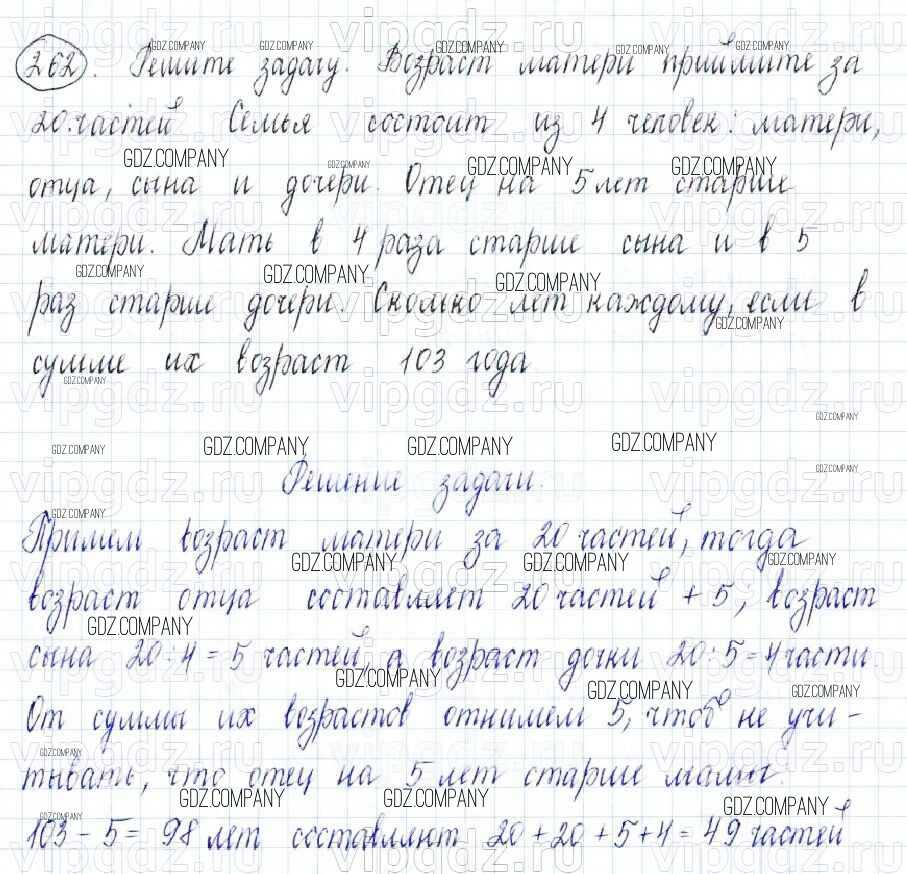 262. Решите задачу. Возраст матери приймите за
20 частей Семья состоит из 4 человек: матери,
отца, сына и дочери. Отец на 5 лет старше
матери. Мать в 4 раза старше сына и в 5
раз старше дочери. Сколько лет каждому, если в
сумме их возраст 103 года
Решение задачи.
Примем возраст матери за 20 частей, тогда
возраст отца составляет 20 частей + 5, возраст
сына 20 : 4 = 5 частей, а возраст дочки 20 : 5 = 4 части.
От суммы их возрастов отнимем 5, чтоб не учи-
тывать, что отец на 5 лет старше мамы.
103 - 5 = 98 лет составляют 20 + 20 + 5 + 4 = 49 частей